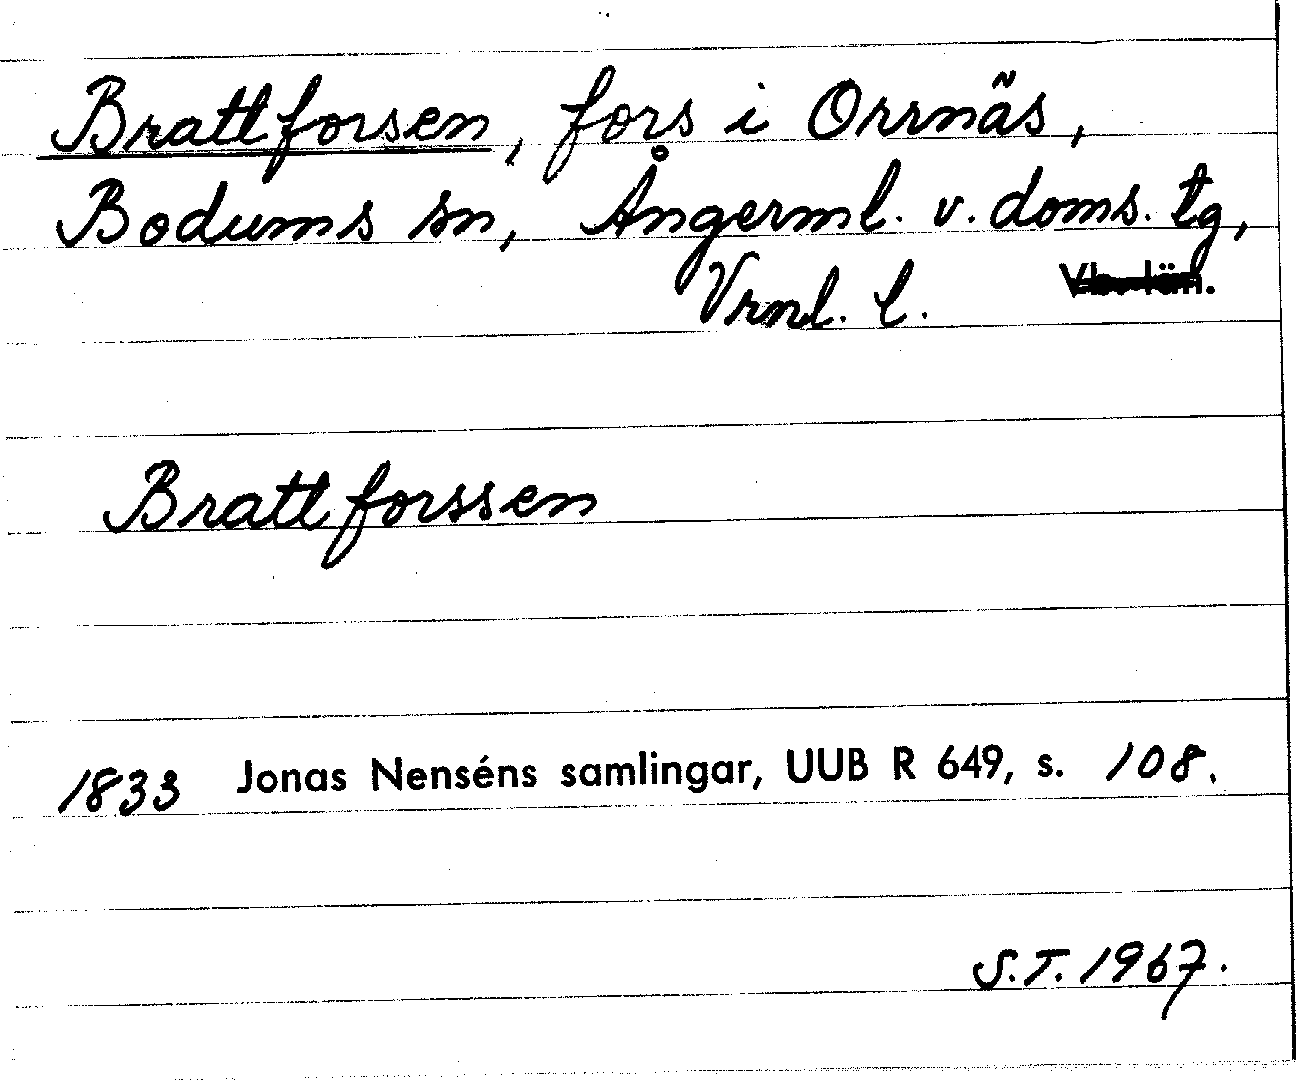 Brattforsen, fors i Orrnäs,
Bodums sn, Ångerml. v. doms. tg,
Vrnl. l.
Brattforssen
1833 Jonas Nenséns samlingar, UUB R 649, s. 108.
S.T. 1967.